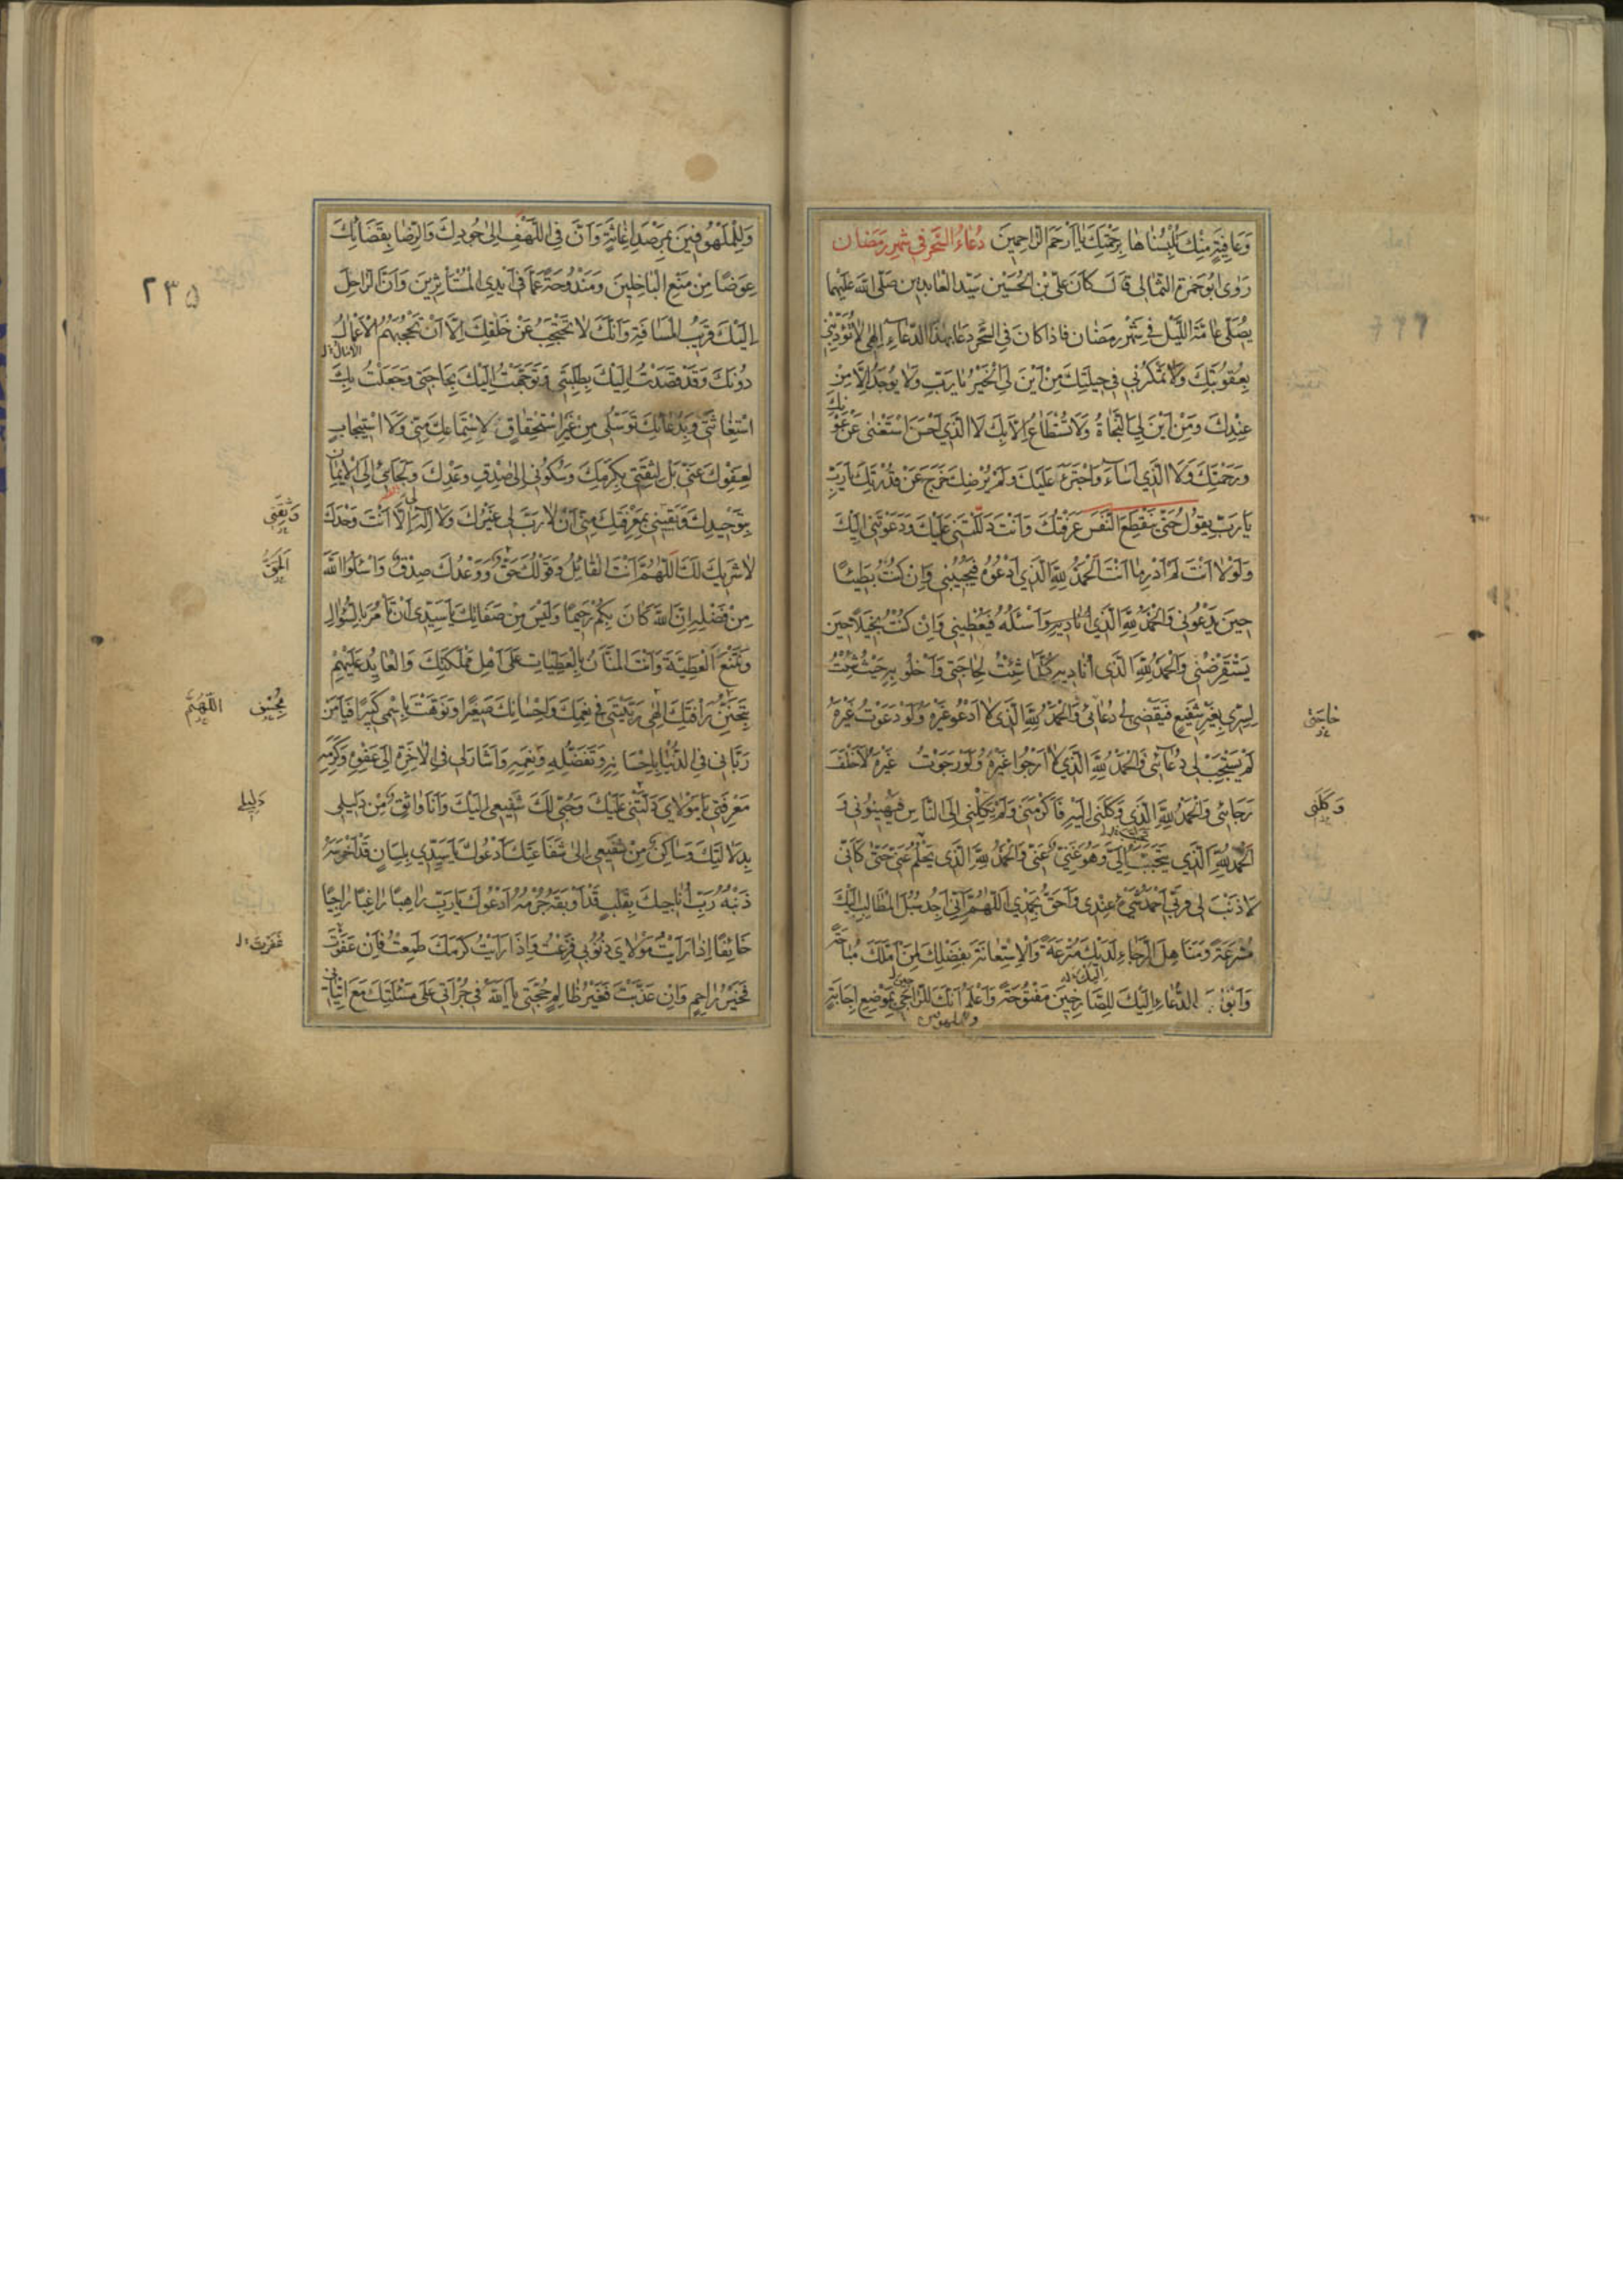 وَعَافِيَةٍ مِنْكَ تُلْبِسُنَاهَا بِرَحْمَتِكَ يَا اَرْحَمَ الرَّاحِمِينَ دُعَاءُ السَّحَرِ فِي شَهْرِ رَمَضَان
رَوٰى اَبُو حَمْزَةَ الثُّمَالِي قَالَ كَانَ عَلِيُّ بْنُ الْحُسَيْنِ سَيِّدُ الْعَابِدِينَ صَلَّى اللّٰهُ عَلَيْهِمَا
يُصَلِّي عَامَّةَ اللَّيْلِ فِي شَهْرِ رَمَضَان فَاِذَا كَانَ فِي السَّحَرِ دَعَا بِهٰذَا الدُّعَاءِ اِلٰهِي لَا تُؤَدِّبْنِي
بِعُقُوبَتِكَ وَلَا تَمْكُرْ بِي فِي حِيلَتِكَ مِنْ اَيْنَ لِيَ الْخَيْرُ يَا رَبِّ وَلَا يُوجَدُ اِلَّا مِنْ
عِنْدِكَ وَمِنْ اَيْنَ لِيَ النَّجَاةُ وَلَا تُسْتَطَاعُ اِلَّا بِكَ لَا الَّذِي اَحْسَنَ اسْتَغْنٰى عَنْ عَوْنِكَ
وَرَحْمَتِكَ وَلَا الَّذِي اَسَاءَ وَاجْتَرَءَ عَلَيْكَ وَلَمْ يُرْضِكَ خَرَجَ عَنْ قُدْرَتِكَ يَا رَبِّ
يَا رَبِّ يَقُولُ حَتّٰى يَنْقَطِعَ النَّفَسُ عَرَفْتُكَ وَاَنْتَ دَلَلْتَنِي عَلَيْكَ وَدَعَوْتَنِي اِلَيْكَ
وَلَوْلَا اَنْتَ لَمْ اَدْرِ مَا اَنْتَ اَلْحَمْدُ لِلّٰهِ الَّذِي اَدْعُوهُ فَيُجِيبُنِي وَاِنْ كُنْتُ بَطِيئًا
حِينَ يَدْعُونِي وَالْحَمْدُ لِلّٰهِ الَّذِي وَاَسْئَلُهُ فَيُعْطِينِي وَاِنْ كُنْتُ بَخِيلًا حِينَ
يَسْتَقْرِضُنِي وَالْحَمْدُ لِلّٰهِ الَّذِي اُنَادِيهِ كُلَّمَا شِئْتُ لِحَاجَتِي وَاَخْلُو بِهِ حَيْثُ شِئْتُ
لِسِرِّي بِغَيْرِ شَفِيعٍ فَيَقْضِي لِي دُعَائِي وَالْحَمْدُ لِلّٰهِ الَّذِي لَا اَدْعُو غَيْرَهُ وَلَوْ دَعَوْتُ غَيْرَهُ
حَاجَتِي
لَمْ يَسْتَجِبْ لِي دُعَائِي وَالْحَمْدُ لِلّٰهِ الَّذِي لَا اَرْجُوا غَيْرَهُ وَلَوْ رَجَوْتُ غَيْرَهُ لَاَخْلَفَ
رَجَائِي وَالْحَمْدُ لِلّٰهِ الَّذِي وَكَلَنِي اِلَيْهِ فَاَكْرَمَنِي وَلَمْ يَكِلْنِي اِلَى النَّاسِ فَيُهِينُونِي وَ
وَكَلَنِي
الْحَمْدُ لِلّٰهِ الَّذِي تَحَبَّبَ اِلَيَّ وَهُوَ غَنِيٌّ عَنِّي وَالْحَمْدُ لِلّٰهِ الَّذِي يَحْلُمُ عَنِّي حَتّٰى كَاَنِّي
لَا ذَنْبَ لِي فَرَبِّي اَحْمَدُ شَيْءٍ عِنْدِي وَاَحَقُّ بِحَمْدِي اَللّٰهُمَّ اِنِّي اَجِدُ سُبُلَ الْمَطَالِبِ اِلَيْكَ
مُشْرَعَةً وَمَنَاهِلَ الرَّجَاءِ لَدَيْكَ مُتْرَعَةً وَالْاِسْتِعَانَةَ بِفَضْلِكَ لِمَنْ اَمَّلَكَ مُبَاحَةً
وَاَبْوَابَ الدُّعَاءِ اِلَيْكَ لِلصَّارِخِينَ مَفْتُوحَةً وَاَعْلَمُ اَنَّكَ لِلرَّاجِي بِمَوْضِعِ اِجَابَةٍ
وللملهوفين
۲۳۵
وَلِلْمَلْهُوفِينَ بِمَرْصَدِ اِغَاثَةٍ وَاَنَّ فِي اللَّهْفِ اِلٰى جُودِكَ وَالرِّضَا بِقَضَائِكَ
عِوَضًا مِنْ مَنْعِ الْبَاخِلِينَ وَمَنْدُوحَةً عَمَّا فِي اَيْدِي الْمُسْتَأْثِرِينَ وَاَنَّ الرَّاحِلَ
اِلَيْكَ قَرِيبُ الْمَسَافَةِ وَاَنَّكَ لَا تَحْتَجِبُ عَنْ خَلْقِكَ اِلَّا اَنْ تَحْجُبَهُمُ الْاَعْمَالُ
دُونَكَ وَقَدْ قَصَدْتُ اِلَيْكَ بِطَلِبَتِي وَتَوَجَّهْتُ اِلَيْكَ بِحَاجَتِي وَجَعَلْتُ بِكَ
اسْتِغَاثَتِي وَبِدُعَائِكَ تَوَسُّلِي مِنْ غَيْرِ اسْتِحْقَاقٍ لِاسْتِمَاعِكَ مِنِّي وَلَا اسْتِيجَابٍ
لِعَفْوِكَ عَنِّي بَلْ لِثِقَتِي بِكَرَمِكَ وَسُكُونِي اِلٰى صِدْقِ وَعْدِكَ وَلَجَائِي اِلَى الْاِيمَانِ
بِتَوْحِيدِكَ وَيَقِينِي بِمَعْرِفَتِكَ مِنِّي اَنْ لَا رَبَّ لِي غَيْرُكَ وَلَا اِلٰهَ اِلَّا اَنْتَ وَحْدَكَ
وَثِقَتِي
لَا شَرِيكَ لَكَ اَللّٰهُمَّ اَنْتَ الْقَائِلُ وَقَوْلُكَ حَقٌّ وَوَعْدُكَ صِدْقٌ وَاسْئَلُوا اللّٰهَ
اَلْحَقُّ
مِنْ فَضْلِهِ اِنَّ اللّٰهَ كَانَ بِكُمْ رَحِيمًا وَلَيْسَ مِنْ صِفَاتِكَ يَا سَيِّدِي اَنْ تَأْمُرَ بِالسُّؤَالِ
وَتَمْنَعَ الْعَطِيَّةَ وَاَنْتَ الْمَنَّانُ بِالْعَطِيَّاتِ عَلٰى اَهْلِ مَمْلَكَتِكَ وَالْعَايِدُ عَلَيْهِمْ
بِتَحَنُّنِ رَأْفَتِكَ اِلٰهِي رَبَّيْتَنِي فِي نِعَمِكَ وَاِحْسَانِكَ صَغِيرًا وَنَوَّهْتَ بِاسْمِي كَبِيرًا فَيَا مَنْ
اَللّٰهُمَّ
رَبَّانِي فِي الدُّنْيَا بِاِحْسَانِهِ وَتَفَضُّلِهِ وَنِعَمِهِ وَاَشَارَ لِي فِي الْاٰخِرَةِ اِلٰى عَفْوِهِ وَكَرَمِهِ
مَعْرِفَتِي يَا مَوْلَايَ دَلَّتْنِي عَلَيْكَ وَحُبِّي لَكَ شَفِيعِي اِلَيْكَ وَاَنَا وَاثِقٌ مِنْ دَلِيلِي
دَلِيلِي
بِدَلَالَتِكَ وَسَاكِنٌ مِنْ شَفِيعِي اِلٰى شَفَاعَتِكَ اَدْعُوكَ يَا سَيِّدِي بِلِسَانٍ قَدْ اَخْرَسَهُ
ذَنْبُهُ رَبِّ اُنَاجِيكَ بِقَلْبٍ قَدْ اَوْبَقَهُ جُرْمُهُ اَدْعُوكَ يَا رَبِّ رَاهِبًا رَاغِبًا رَاجِيًا
خَائِفًا اِذَا رَاَيْتُ مَوْلَايَ ذُنُوبِي فَزِعْتُ وَاِذَا رَاَيْتُ كَرَمَكَ طَمِعْتُ فَاِنْ عَفَوْتَ
غَفَرْتَ
فَخَيْرُ رَاحِمٍ وَاِنْ عَذَّبْتَ فَغَيْرُ ظَالِمٍ حُجَّتِي يَا اَللّٰهُ فِي جُرْأَتِي عَلٰى مَسْئَلَتِكَ مَعَ اِتْيَانِي